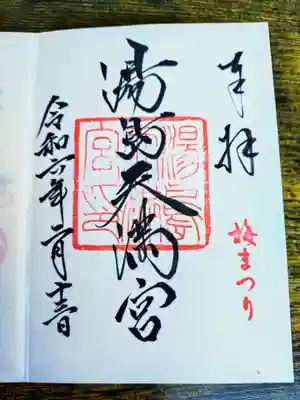 奉拝
梅まつり
湯島天満宮
湯島
宮印
令和六年二月十三日